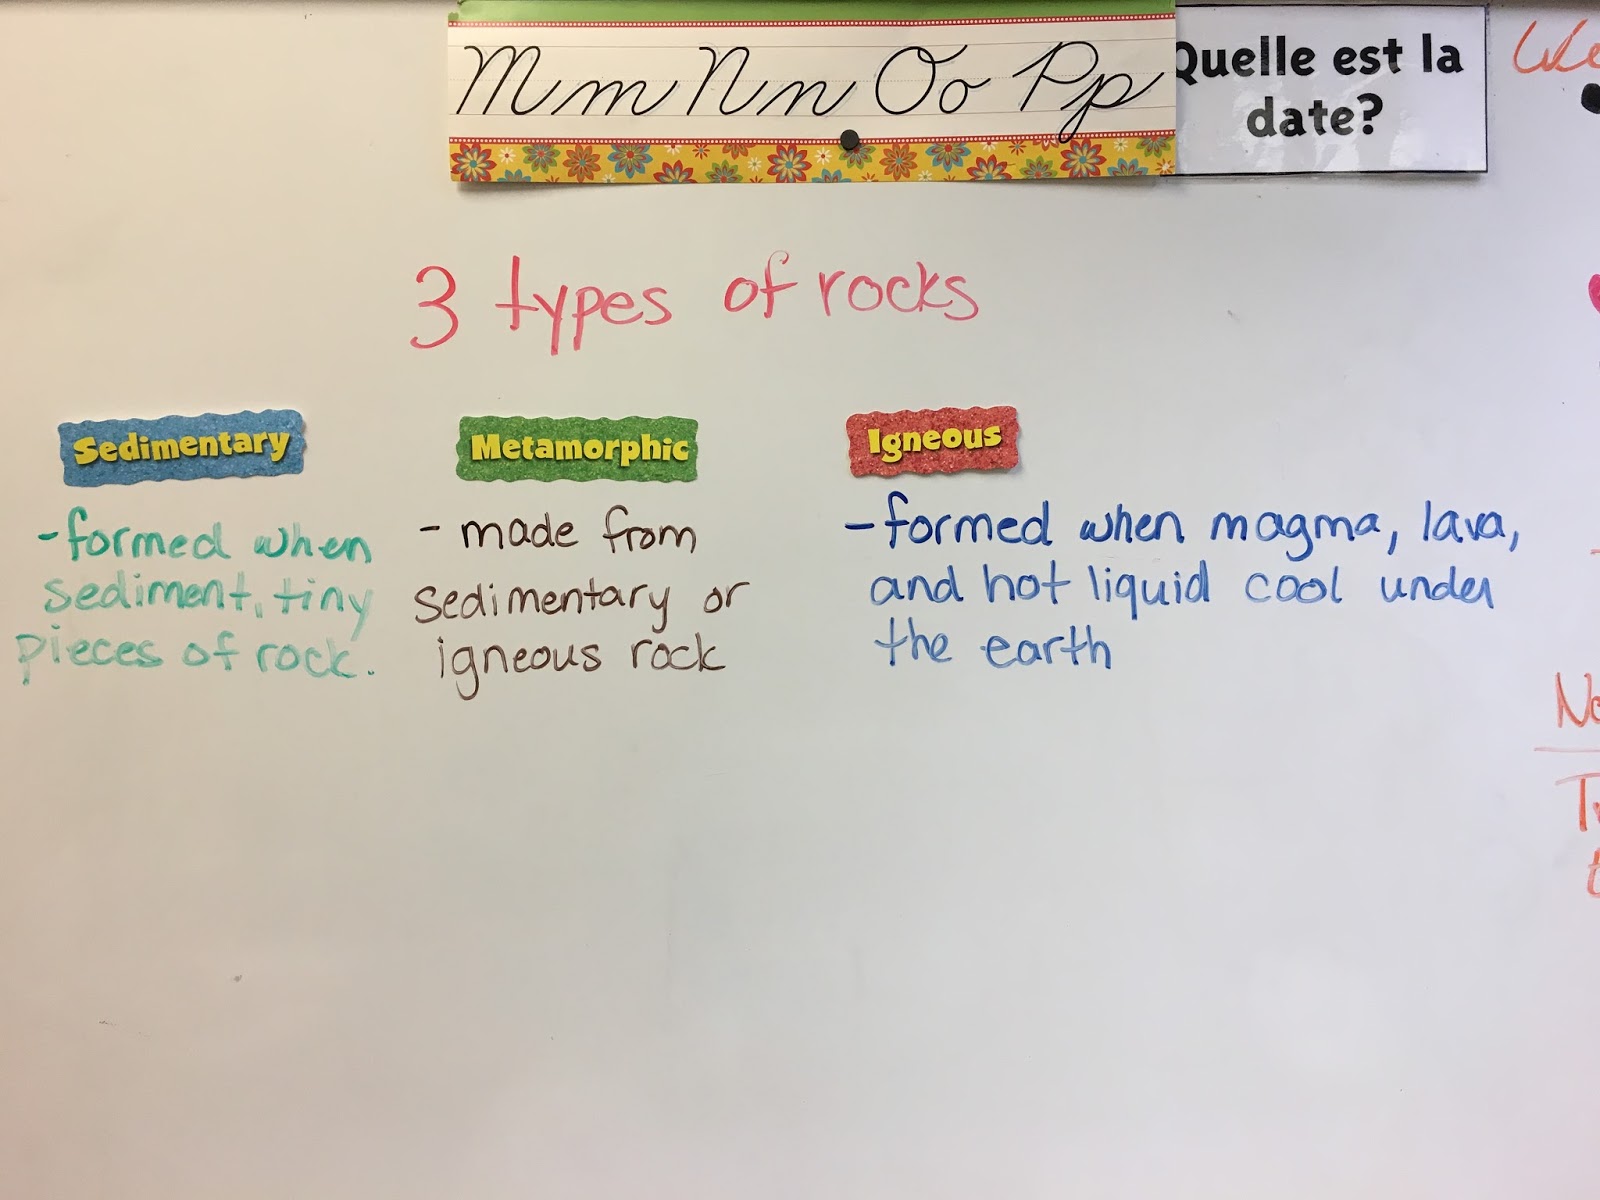 Mm Nn Oo Pp
Quelle est la
date?
3 types of rocks
Sedimentary
-formed when
sediment, tiny
pieces of rock.
Metamorphic
- made from
sedimentary or
igneous rock
Igneous
-formed when magma, lava,
and hot liquid cool under
the earth